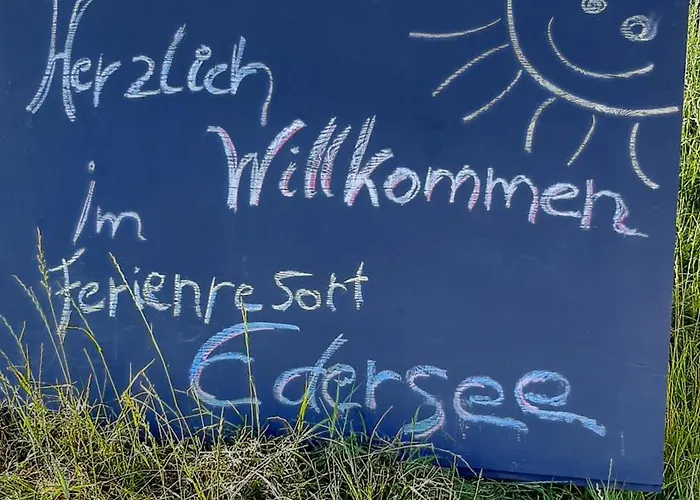 Herzlich
Willkommen
im
Ferienresort
Edersee